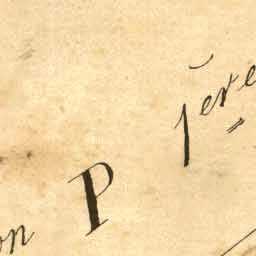 on P 1ere